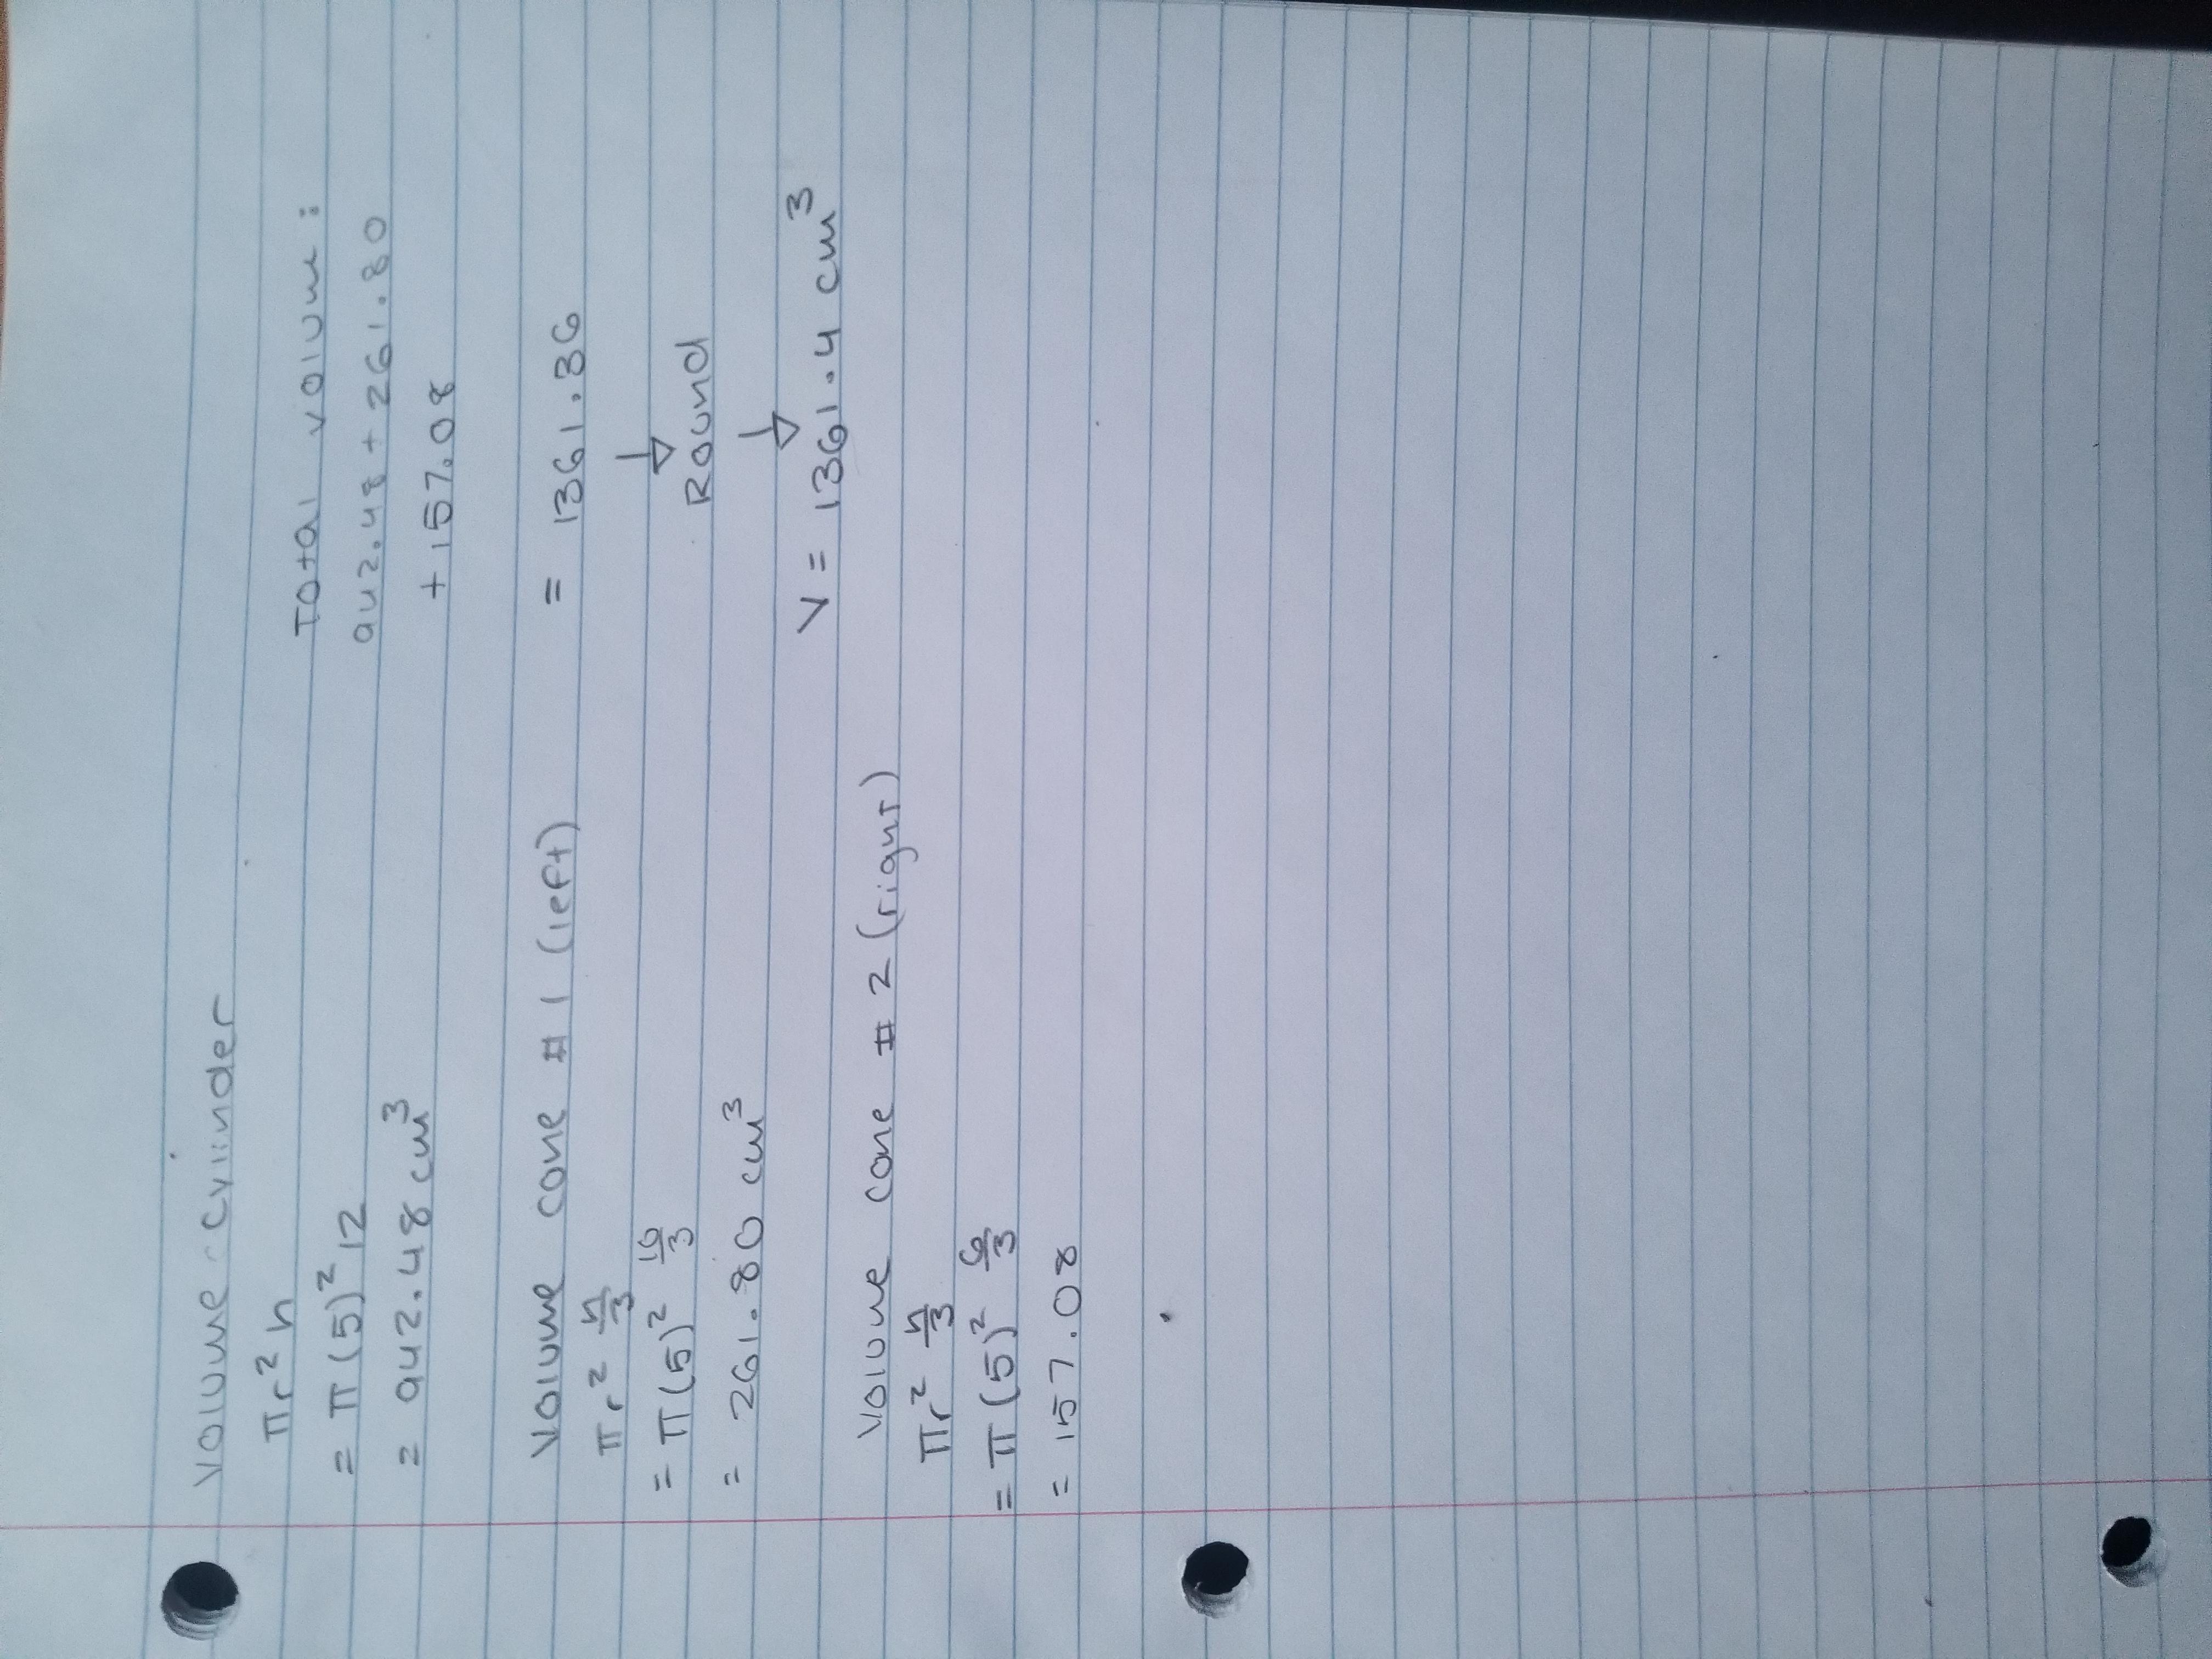 Volume cylinder
πr² h
= π(5)² 12
= 942.48 cm³
Volume cone #1 (left)
πr² h/3
= π(5)² 10/3
= 261.80 cm³
Volume cone #2 (right)
πr² h/3
= π(5)² 6/3
= 157.08
Total volume:
942.48 + 261.80
+ 157.08
= 1361.36
Round
V = 1361.4 cm³